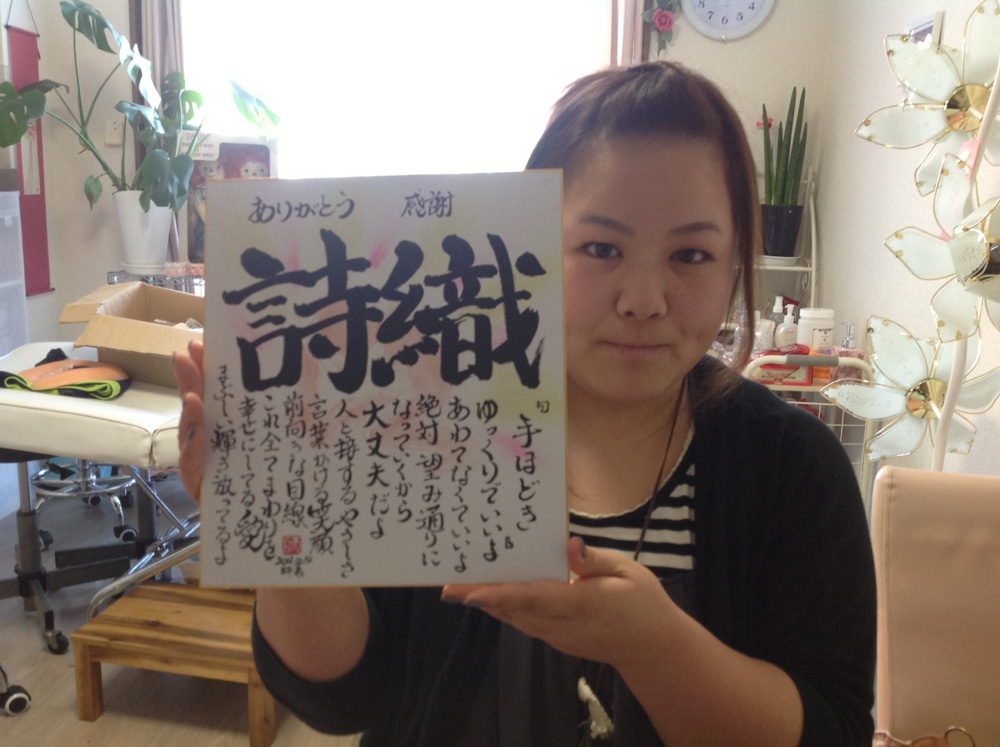 ありがとう 感謝
詩織
『手ほどき』
ゆっくりでいいよ
あわてなくていいよ
絶対望み通りに
なっていくから
大丈夫だよ
人と接するやさしさ
言葉かける笑顔
前向きな目線
これ全てまわりを
幸せにしてる愛
まぶしい輝き放ってるよ
8 7 6 5 4